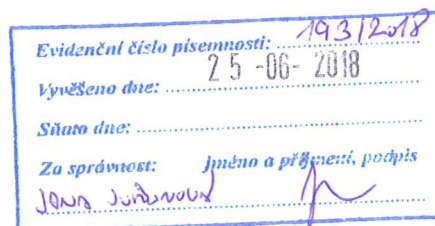 Evidenční číslo písemnosti: 193/2018
Vyvěšeno dne: 25 -06- 2018
Sňato dne:
Za správnost: jméno a příjmení, podpis